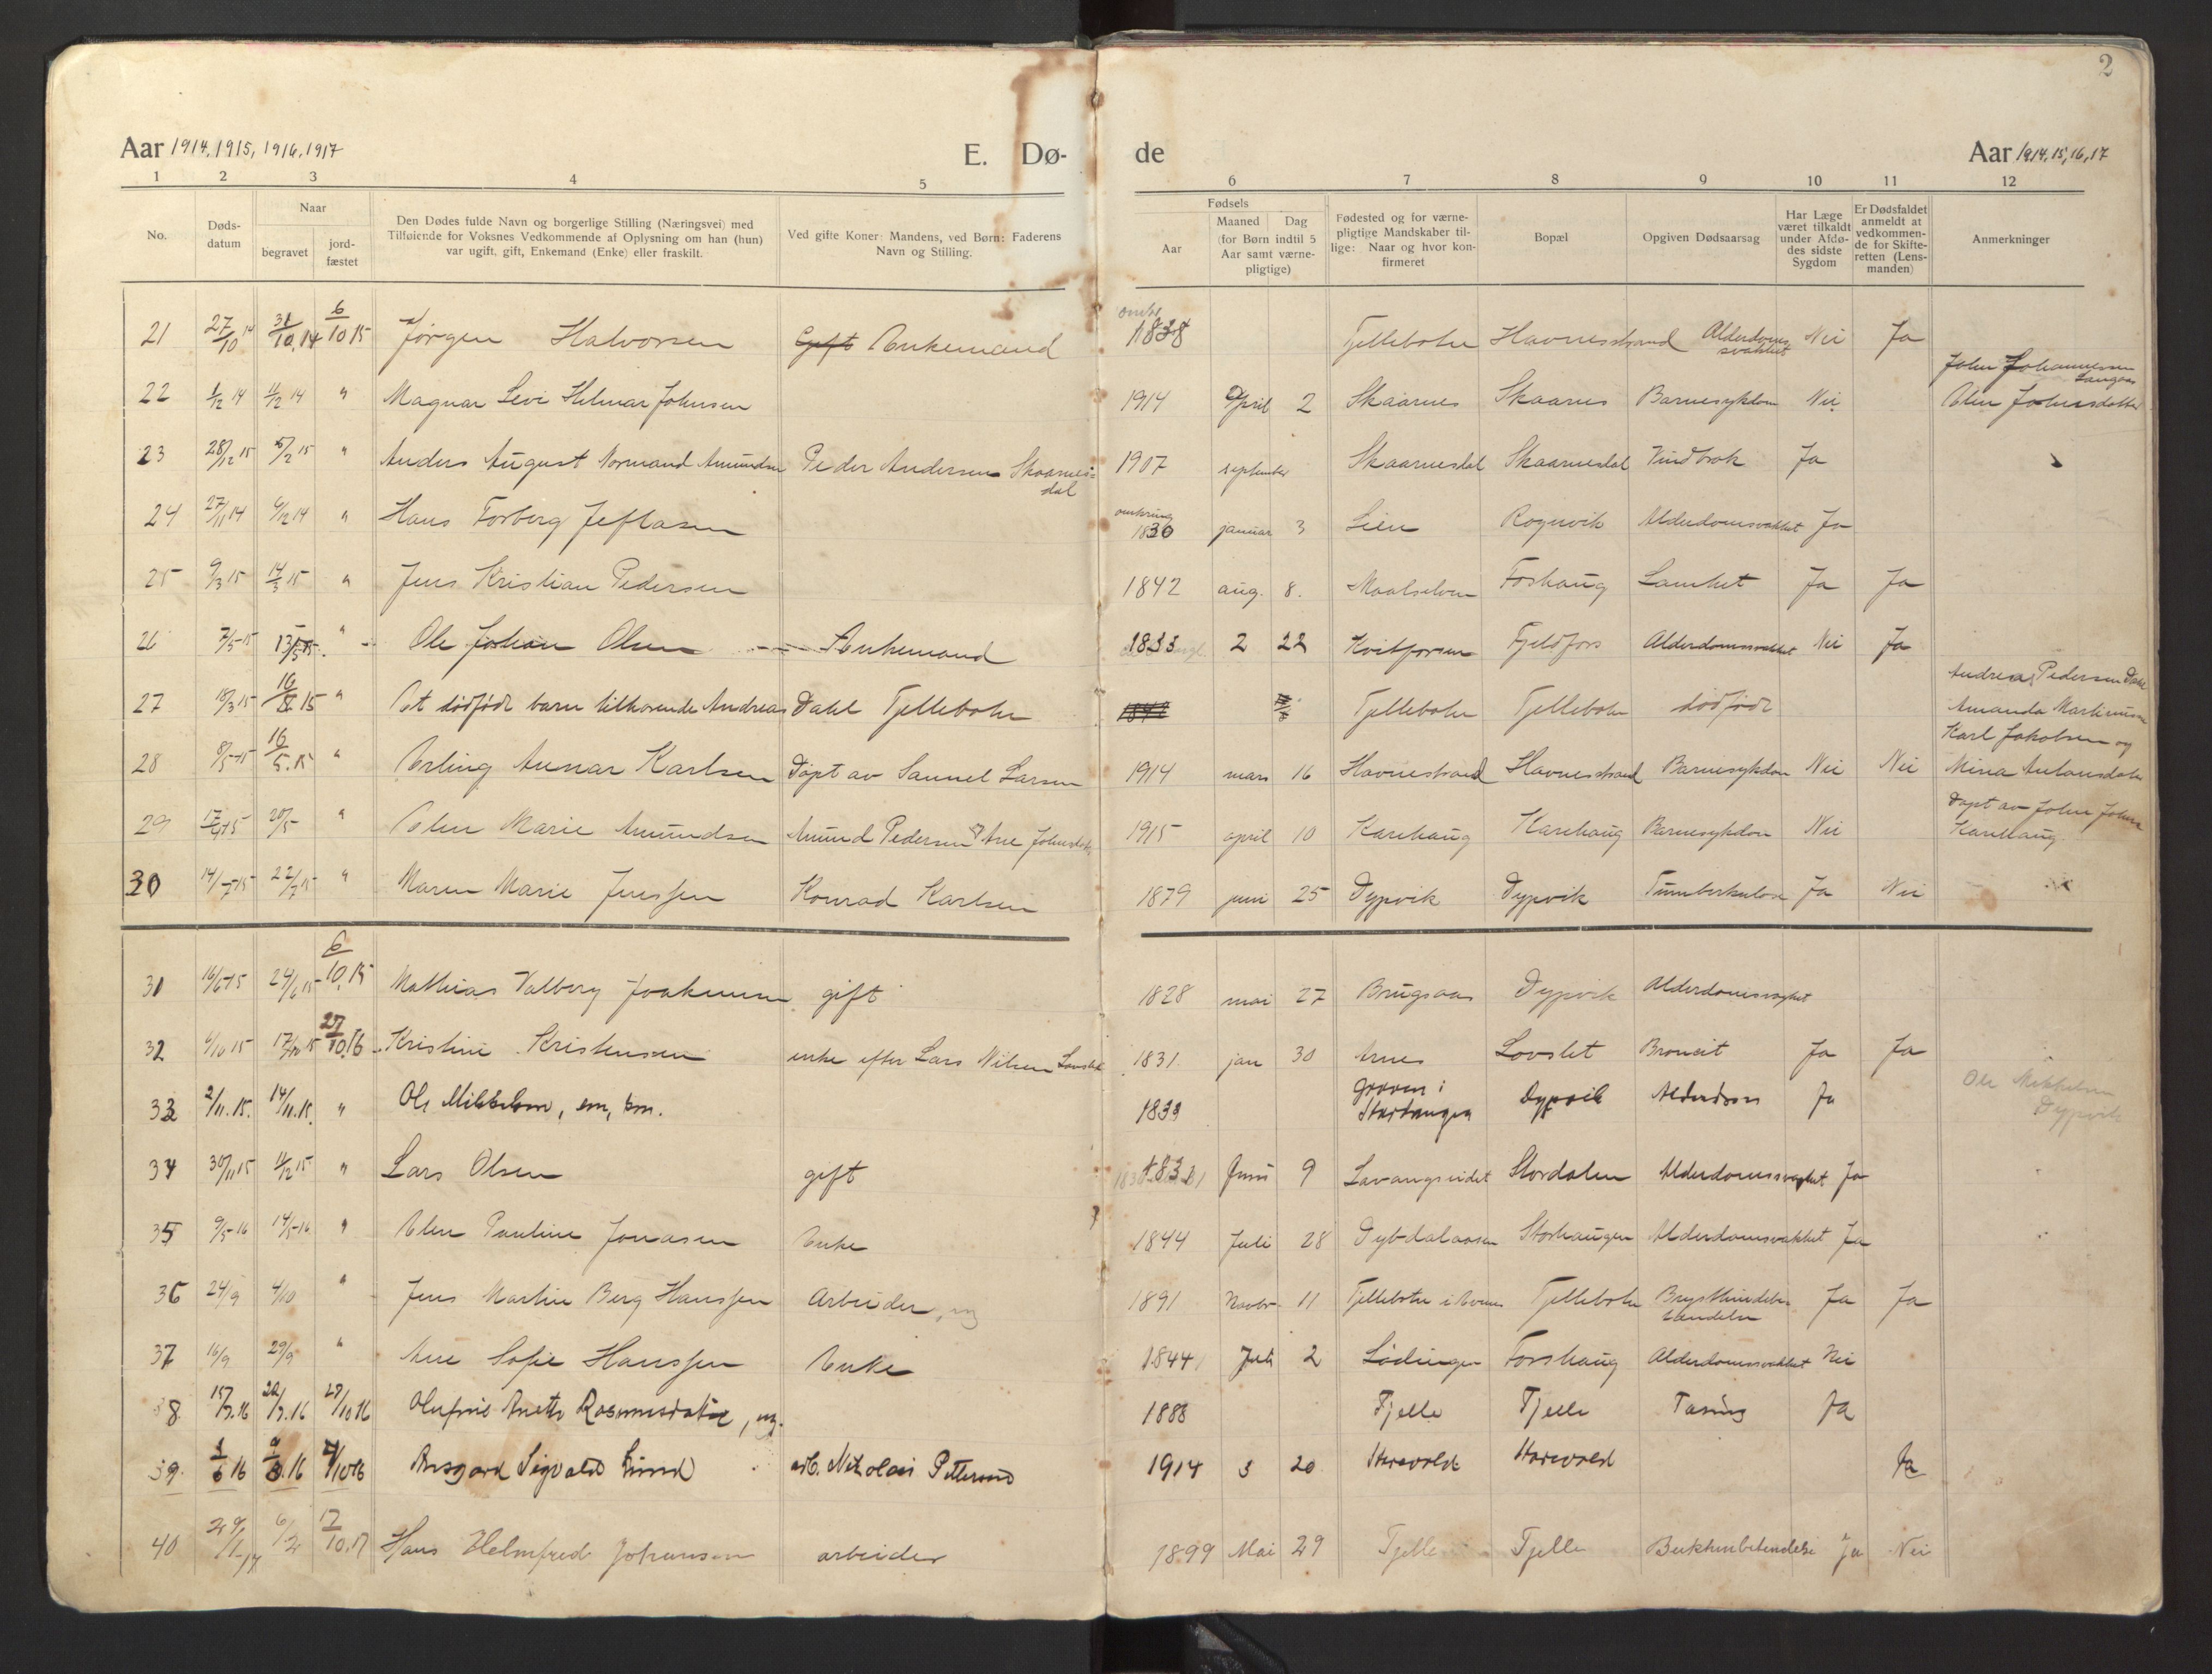 2
Aar 1914, 1915, 1916, 1917 E. Dø- de Aar 1914, 15, 16, 17
1 2 3 4 5 6 7 8 9 10 11 12
No.
Døds-
datum
Naar
begravet
jord-
fæstet
Den Dødes fulde Navn og borgerlige Stilling (Næringsvei) med
Tilføiende for Voksnes Vedkommende af Oplysning om han (hun)
var ugift, gift, Enkemand (Enke) eller fraskilt.
Ved gifte Koner: Mandens, ved Børn: Faderens
Navn og Stilling.
Fødsels
Aar
Maaned Dag
(for Børn indtil 5
Aar samt værne-
pligtige)
Fødested og for værne-
pligtige Mandskaber til-
lige: Naar og hvor kon-
firmeret
Bopæl
Opgiven Dødsaarsag
Har Læge
været tilkaldt
under Afdø-
des sidste
Sygdom
Er Dødsfaldet
anmeldt at
vedkommen-
de for Skifte-
retten (Lens-
manden)
Anmerkninger
21 27/10 14 31/10.14 6/10 15 Jørgen Halvorsen Gift Enkemand 1838 Tjellebotn Havnestrand Alderdoms svakhet Nei Ja
22 1/12 14 11/12 14 " Magnar Levi Helmar Johnsen 1914 April 2 Skaarnes Skaarnes Barnesykdom Nei John Johannessen
Elen Johnsdatter
23 28/12 15 5/2 15 " Anders August Normand Amundsen Peder Andersen Skaarnes=
dal 1907 september Skaarnesdal Skaarnesdal Vindbrok Ja
24 27/11 14 6/12 14 " Hans Forberg Jeftasen omkring
1830 januar 3 Lien Rognvik Alderdomsvakhet Ja
25 9/3 15 14/3 15 " Jens Kristian Pedersen 1842 aug. 8. Maalselven Foshaug Lamhet Ja Ja
26 7/5-15 13/5 15. " Ole Johan Olsen Enkemand 1833 2 22 Kvitforsen Fjeldfors Alderdomssvakhet Nei Ja
27 18/3 15 " Et dødfødt barn tilhørende Andreas Dahl Tjellebotn Tjellebotn Tjellebotn dødfødt Andreas Pedersen Dahl
Amanda Martinussen
28 8/5-15 16/5.15 " Erling Annar Karlsen Døpt av Samuel Larsen 1914 mars 16 Havnestrand Havnestrand Barnesykdom Nei Nei Karl Jakobsen og
Mina Antonsdatter
29 20/5 " Elen Marie Amundsen Amund Pedersen Ane Johnsdatter 1915 april 10 Karehaug Karehaug Barnesykdom Nei Døpt av John Johns
Karehaug.
30 14/7-15 22/7 15 " Maren Marie Jenssen Konrad Karlsen 1879 juni 25 Dypvik Dypvik Tumberkulose Ja Nei
31 16/6-15 24/6 15 6/10.15 Mathias Valberg Joakimsen gift 1828 mai 27 Brugsaas Dypvik Alderdomssvaghet
32 6/10 15 17/10 15 27/10.16 Kristine Kristensen enke efter Lars Nilsen Lovslet 1831. jan 30 Arnes Lovslet Broncit Ja Ja
33 2/11.15. 14/11.15. " Ole Mikkelsen, 1839 Groven i Dypvik Alderdom Ja Ole Mikkelsen
Dypvik
34 30/11 15 11/12 15 " Lars Olsen gift 1831 Juni 9 Lavangseidet Stordalen Alderdomssvaghet Ja
35 9/5-16 14/5-16 " Elen Pauline Jonasen Enke 1844 Juli 28 Dybdalaasen Storhaugen Alderdomsvakhet Ja
36 24/9 4/10 " Jens Martin Berg Hanssen Arbeider, ug 1891 Novbr. 11 Tjellebotn i Evenes Tjellebotn Brysthindebe-
tændelse Ja Ja
37 16/9 29/9 " Ane Sofie Hanssen Enke 1844 Juli 2 Lødingen Forshaug Alderdomssvakhet Nei
38 15/3.16 22/3.16 27/10 16 Olufine Anette Rasmusdatter, ug. 1888 Tjelle Tjelle Tæring Ja
39. 1/6 16 27/10 16 Ansgard Sigvald Lund arb. Nikolai Pettersen 1914 3 20 Storevold Storevold Ja
40 29/1-17 6/2 17/10.17 Hans Helmfred Johansen arbeider 1899 Mai 29 Tjelle Tjelle Bukhinbetendelse Ja Nei